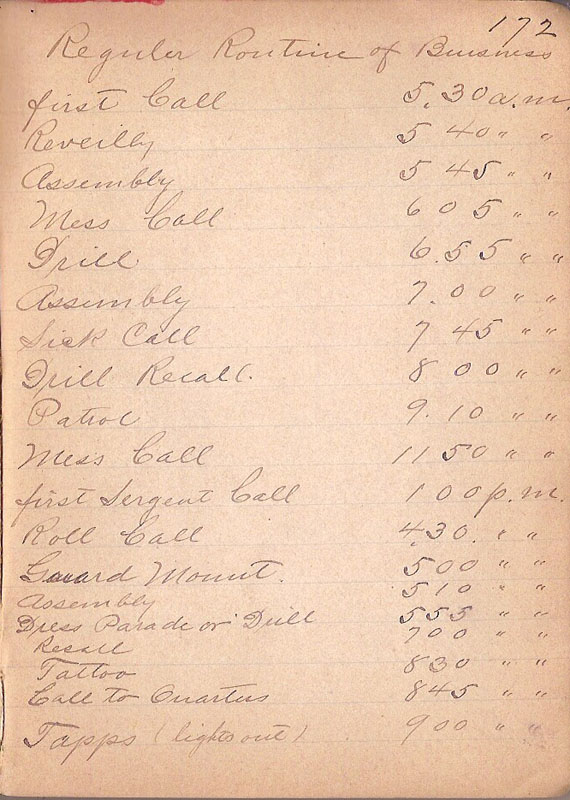 172
Reguler Routine of Buisness
first Call 5.30 a.m.
Reveilly 5 40 " "
Assembly 5 45 " "
Mess Call 6 05 " "
Drill 6.55 " "
Assembly 7.00 " "
Sick Call 7 45 " "
Drill Recall. 8 00 " "
Patrol 9.10 " "
Mess Call 11 50 " "
first Sergent Call 1 00 p.m.
Roll Call 4.30. " "
Guard Mount. 5 00 " "
Assembly 5 10 " "
Dress Parade or Drill 5 55 " "
Recall 7 00 " "
Tattoo 8 30 " "
Call to Quarters 8 45 " "
Tapps (lights out) 9 00 " "